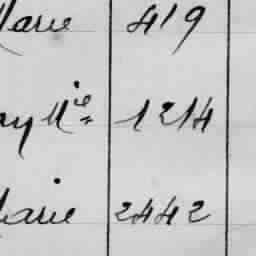 Marie 419
ay Mie 1214
Marie 2442